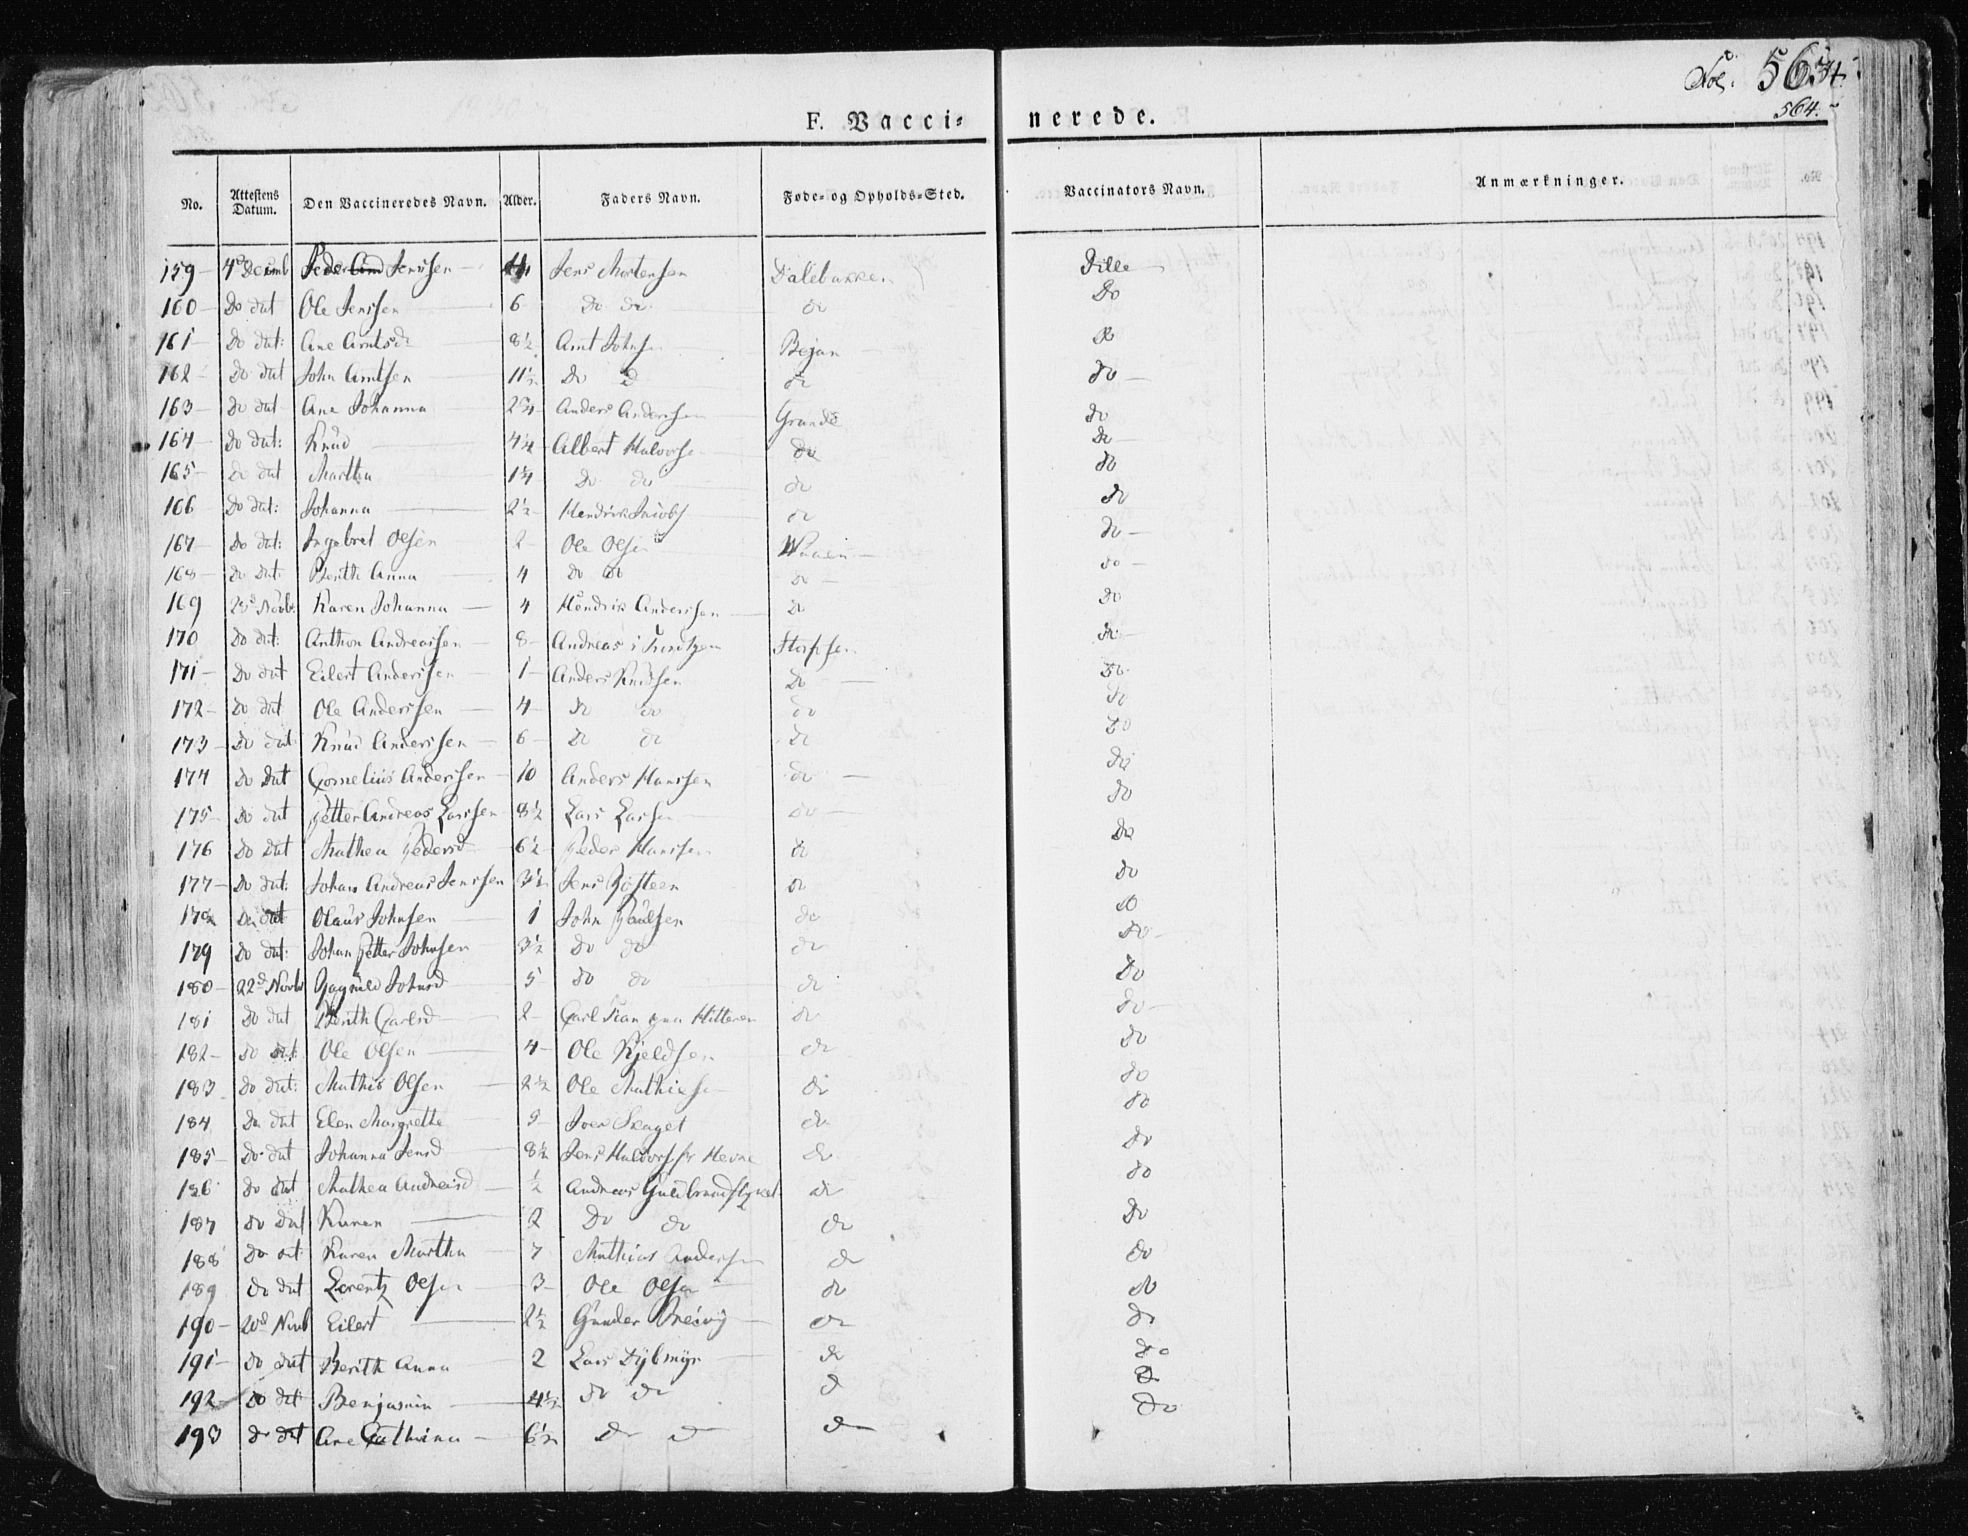 Fol. 563
564.
F. Vacci- nerede.
No. Attestens Datum. Den Vaccineredes Navn. Alder. Faders Navn. Føde- og Opholds-Sted. Vaccinators Navn. Anmærkninger.
159 4d Decemb Jenssen Jens Mortensen Dalebakken Dille
160 Do dat Ole Jenssen 6 Do do do Do
161 Do dat: Ane Arntsd 8½ Arnt Johns Bejan do
162 Do dat John Arntsen 11½ Do d do do
163 do dat Ane Johanna 2¾ Anders Anderssen Grande do
164 Do dat: Knud 4¼ Albert Halvorse do do
165 do dat Martha 1¼ Do do do do
166 Do dat: Johanna 2½ Hendrik Jacobs do do
167 do dat: Ingebret Olsen 2 Ole Olsen do
168 do dat: Berith Anna 4 do do do do
169 Novbr Karen Johanna 4 Hendrik Anderssen do do
170 Do dat: Anthon Andreassen 8 Andreas i do
171 Do dat Eilert Anderssen 1 Anders Knudsen Do do
172 do dat Ole Anderssen 4 do do do do
173 Do dat Knud Anderssen 6 Do do do do
174 do Dat Cornelius Anderssen 10 Anders Hanssen do do
175 do dat Petter Andreas Larssen 8½ Lars Larsen do do
176 Do Dat Mathea Pedersd 6½ Peder Hanssen do do
177 Do dat: Johan Andreas Jenssen 3½ Jens do do
178 Do dat Olaus Johnsen 1 John Paulsen do do
179 Do dat: Johan Petter Johnsen 3½ do do do do
180 22d Novbr Johnsd 5 do do do Do
181 Do dat Berith Carlsd 2 Carl Hitteren do do
182 do dat Ole Olsen 4 Ole Kjeldsen do do
183 do dat: Mathis Olsen 2½ Ole Mathias do do
184 Do dat Elen Margrethe 9 Iver do do
185 do dat Johanna Jensd 8½ Jens Hevne do do
186 do dat Mathea Andreasd ½ Andreas do do
187 do dat Karen 2 Do do do do
188 Do dat Karen Martha 7 Mathias Andersen do do
189 do dat Lorentz Olsen 3 Ole Olsen do do
190 20d Novb Eilert 2½ Gunder do do
191 do dat Berith Anna 2 Lars Dybmyr do do
192 do dat Benjamin 4½ do do d do
193 do dat Ane Cathrina 6½ do do do do